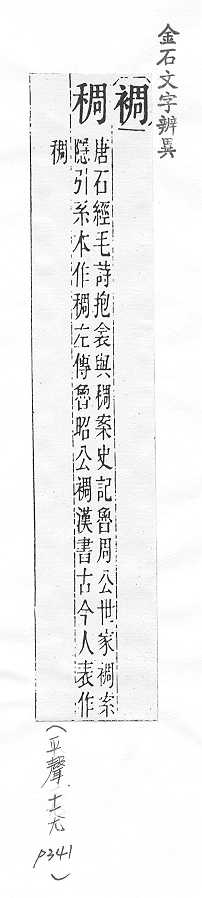 金石文字辨異
裯
稠
唐石經毛詩抱衾與稠案史記魯周公世家裯索
隱引系本作稠左傳魯昭公裯漢書古今人表作
稠
(平聲.十一尤
p341)